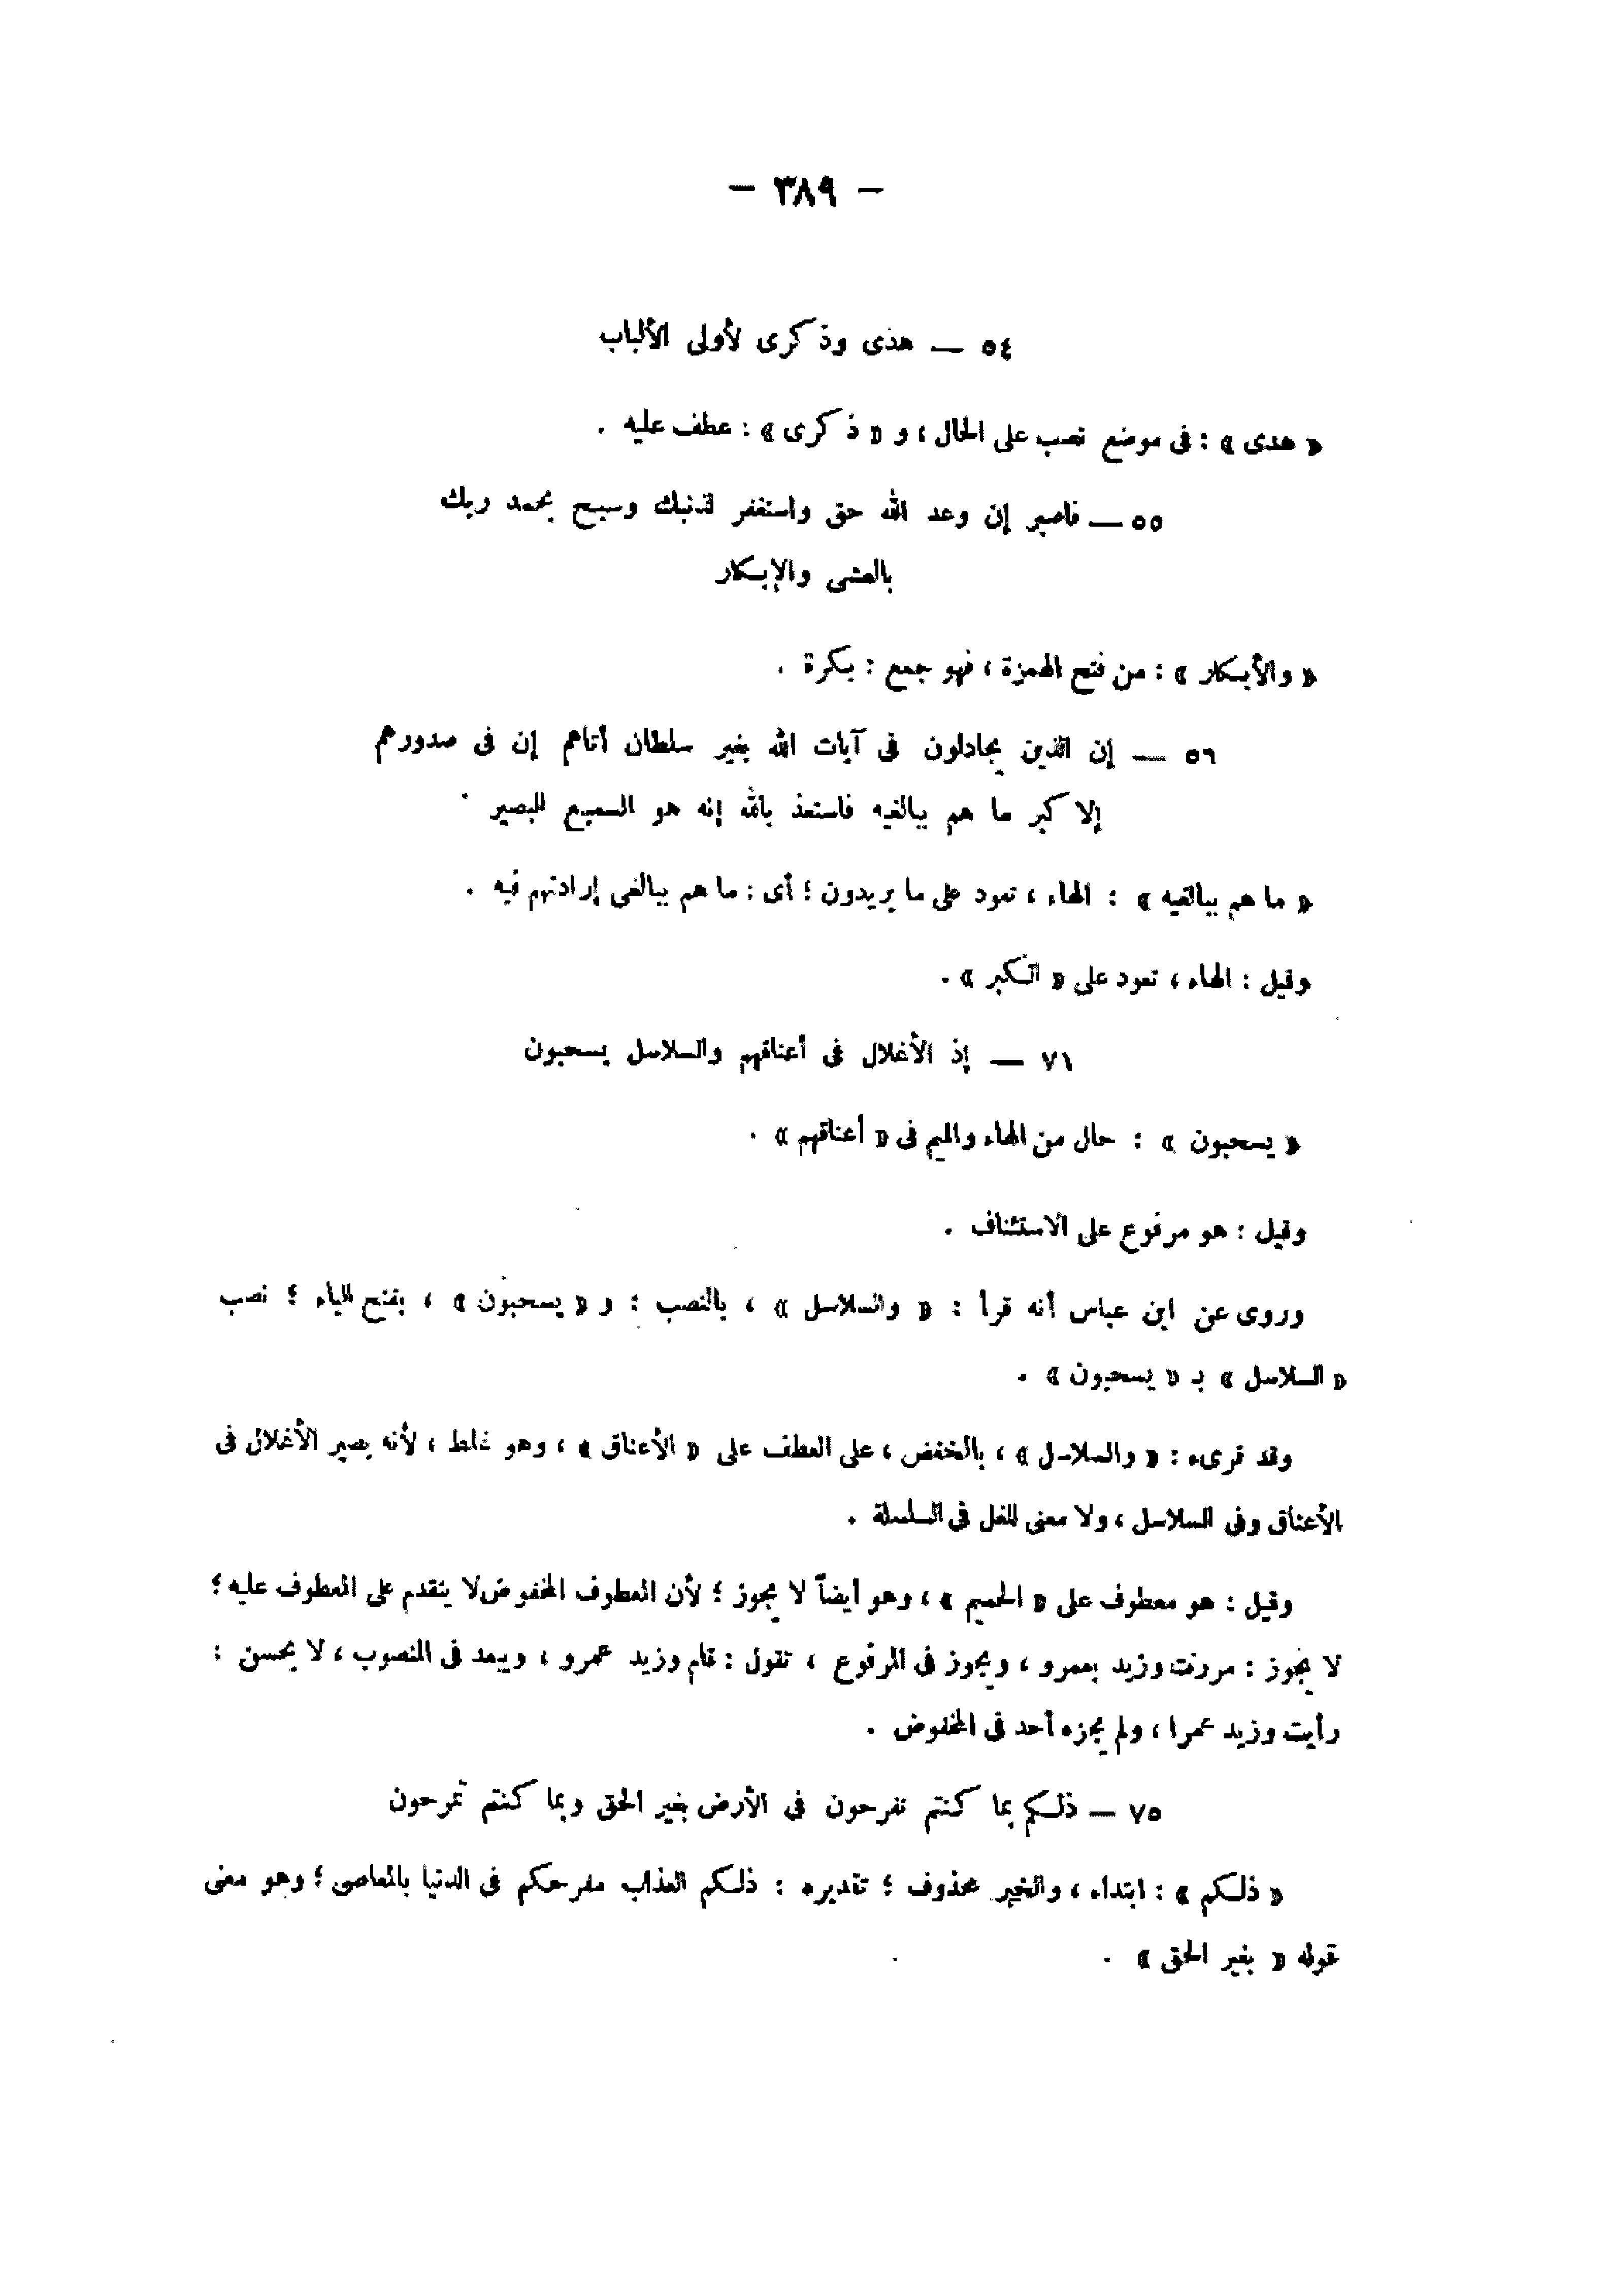 — ٣٨٩ —
٥٤ — هدى وذكرى لأولى الألباب
« هدى » : فى موضع نصب على الحال ، و « ذكرى » : عطف عليه .
٥٥ — فاصبر إن وعد الله حق واستغفر لذنبك وسبح بحمد ربك
بالعشى والإبكار
« والأبكار » : من فتح الهمزة ، فهو جمع : بكرة .
٥٦ — إن الذين يجادلون فى آيات الله بغير سلطان أتاهم إن فى صدورهم
إلا كبر ما هم ببالغيه فاستعذ بالله إنه هو السميع البصير .
« ما هم ببالغيه » : الهاء ، تعود على ما يريدون ؛ أى : ما هم ببالغى إرادتهم فيه .
وقيل : الهاء ، تعود على « الكبر » .
٧١ — إذ الأغلال فى أعناقهم والسلاسل يسحبون
« يسحبون » : حال من الهاء والميم فى « أعناقهم » .
وقيل : هو مرفوع على الاستئناف .
وروى عن ابن عباس أنه قرأ : « والسلاسل » ، بالنصب ؛ و « يسحبون » ، بفتح الياء ؛ نصب
« السلاسل » بـ « يسحبون » .
وقد قرىء : « والسلاسل » ، بالخفض ، على العطف على « الأعناق » ، وهو غلط ، لأنه يصير الأغلال فى
الأعناق وفى السلاسل ، ولا معنى للغل فى السلسلة .
وقيل : هو معطوف على « الحميم » ، وهو أيضاً لا يجوز ؛ لأن المعطوف المخفوض لا يتقدم على المعطوف عليه ؛
لا يجوز : مررت وزيد بعمرو ، ويجوز فى المرفوع ، تقول : قام وزيد عمرو ، ويبعد فى المنصوب ، لا يحسن :
رأيت وزيد عمرا ، ولم يجزه أحد فى المخفوض .
٧٥ — ذلكم بما كنتم تفرحون فى الأرض بغير الحق وبما كنتم تمرحون
« ذلكم » : ابتداء ، والخبر محذوف ؛ تقديره : ذلكم العذاب مفرحكم فى الدنيا بالمعاصى ؛ وهو معنى
قوله « بغير الحق » .